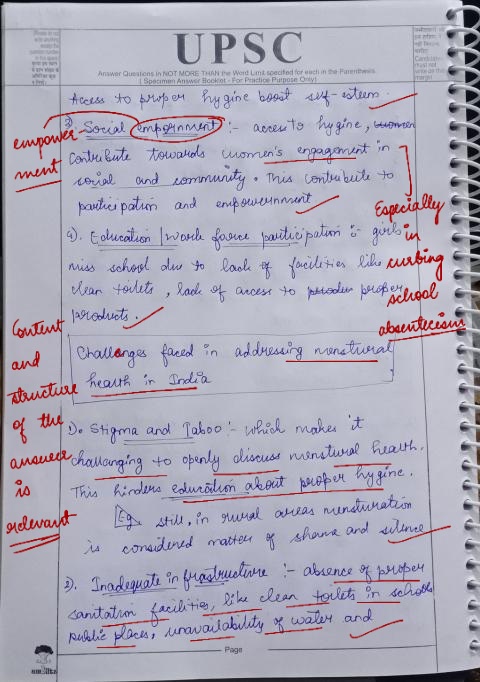 UPSC
Answer Questions in NOT MORE THAN the Word Limit specified for each in the Parenthesis.
( Specimen Answer Booklet - For Practice Purpose Only )
Access to proper hygine boost self-esteem.
3) Social empornment :- access to hygine, women
empower
ment
contribute towards women's engagement in
social and community. This contribute to
participation and empowernment
Especially
in
curbing
school
absentecism
4). Education / Work force participation :- girls
miss school due to lack of facilities like
clean toilets, lack of access to proper
products.
Content
and
structure
of the
answer
is
relevant
Challenges faced in addressing menstural
health in India
1). Stigma and Taboo :- which makes it
challanging to openly discuss menstural health.
This hinders education about proper hygine.
Eg. still, in rural areas mensturation
is considered matter of shame and silence
2). Inadequate infrastructure :- absence of proper
sanitation facilities, like clean toilets in schools
public places, unavailability of water and
Page